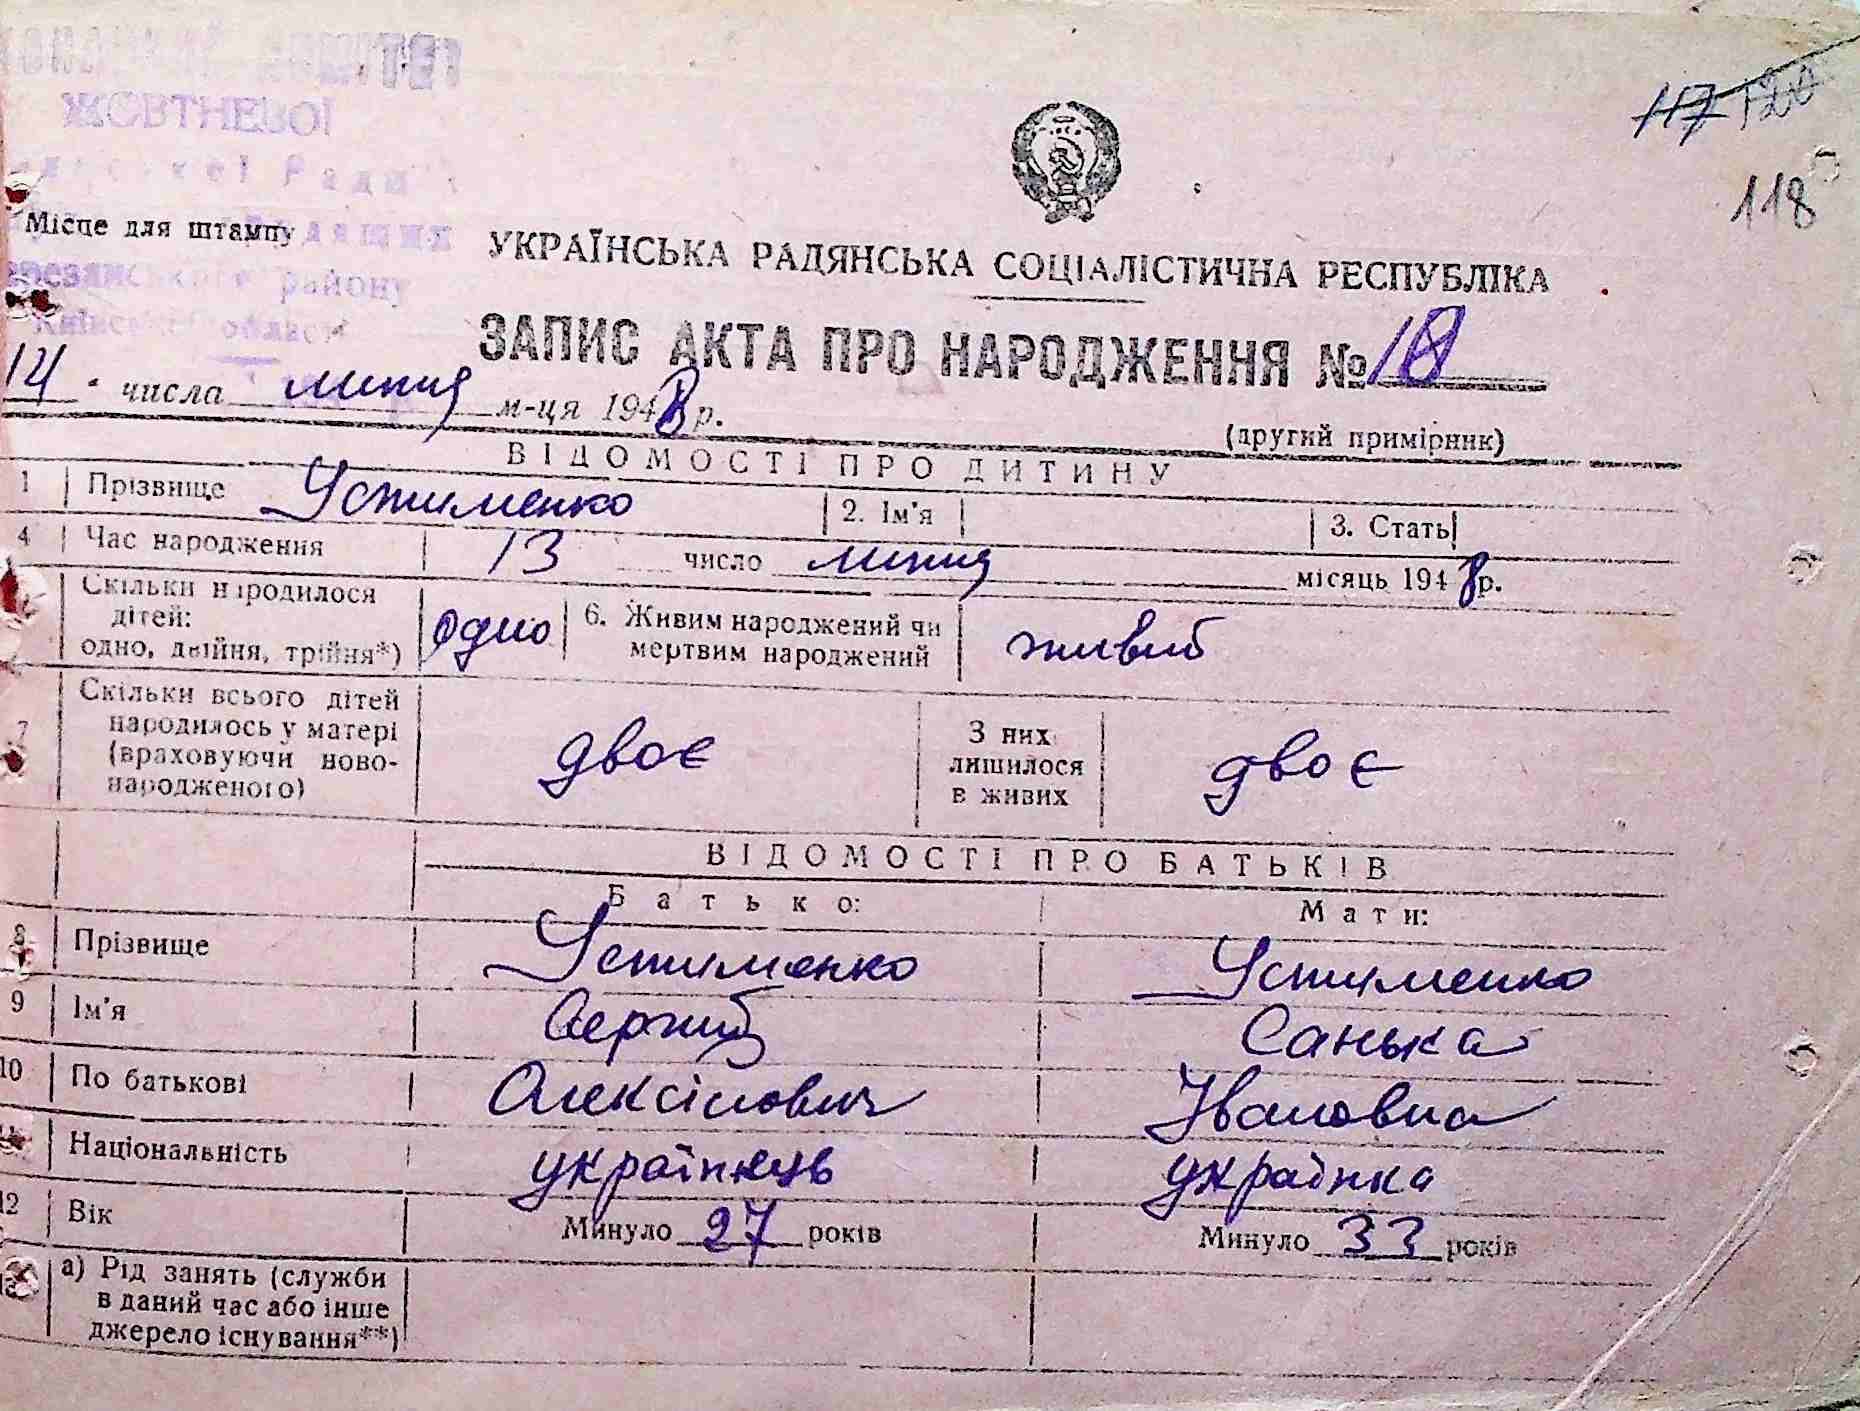 КОМІТЕТ
ЖОВТНЕВОЇ
Ради
Місце для штампу
району
області
117 120
118
УКРАЇНСЬКА РАДЯНСЬКА СОЦІАЛІСТИЧНА РЕСПУБЛІКА
ЗАПИС АКТА ПРО НАРОДЖЕННЯ №18
14 числа липня м-ця 1948 р.
(другий примірник)
ВІДОМОСТІ ПРО ДИТИНУ
1 Прізвище Устименко 2. Ім'я 3. Стать
4 Час народження 13 число липня місяць 1948 р.
Скільки народилося
дітей:
одно, двійня, трійня*) одно 6. Живим народжений чи
мертвим народжений живий
7 Скільки всього дітей
народилось у матері
(враховуючи ново-
народженого) двоє З них
лишилося
в живих двоє
ВІДОМОСТІ ПРО БАТЬКІВ
Батько: Мати:
8 Прізвище Устименко Устименко
9 Ім'я Сергий Санька
10 По батькові Олексійович Івановна
11 Національність українець українка
12 Вік Минуло 27 років Минуло 33 років
13 а) Рід занять (служби
в даний час або інше
джерело існування**)